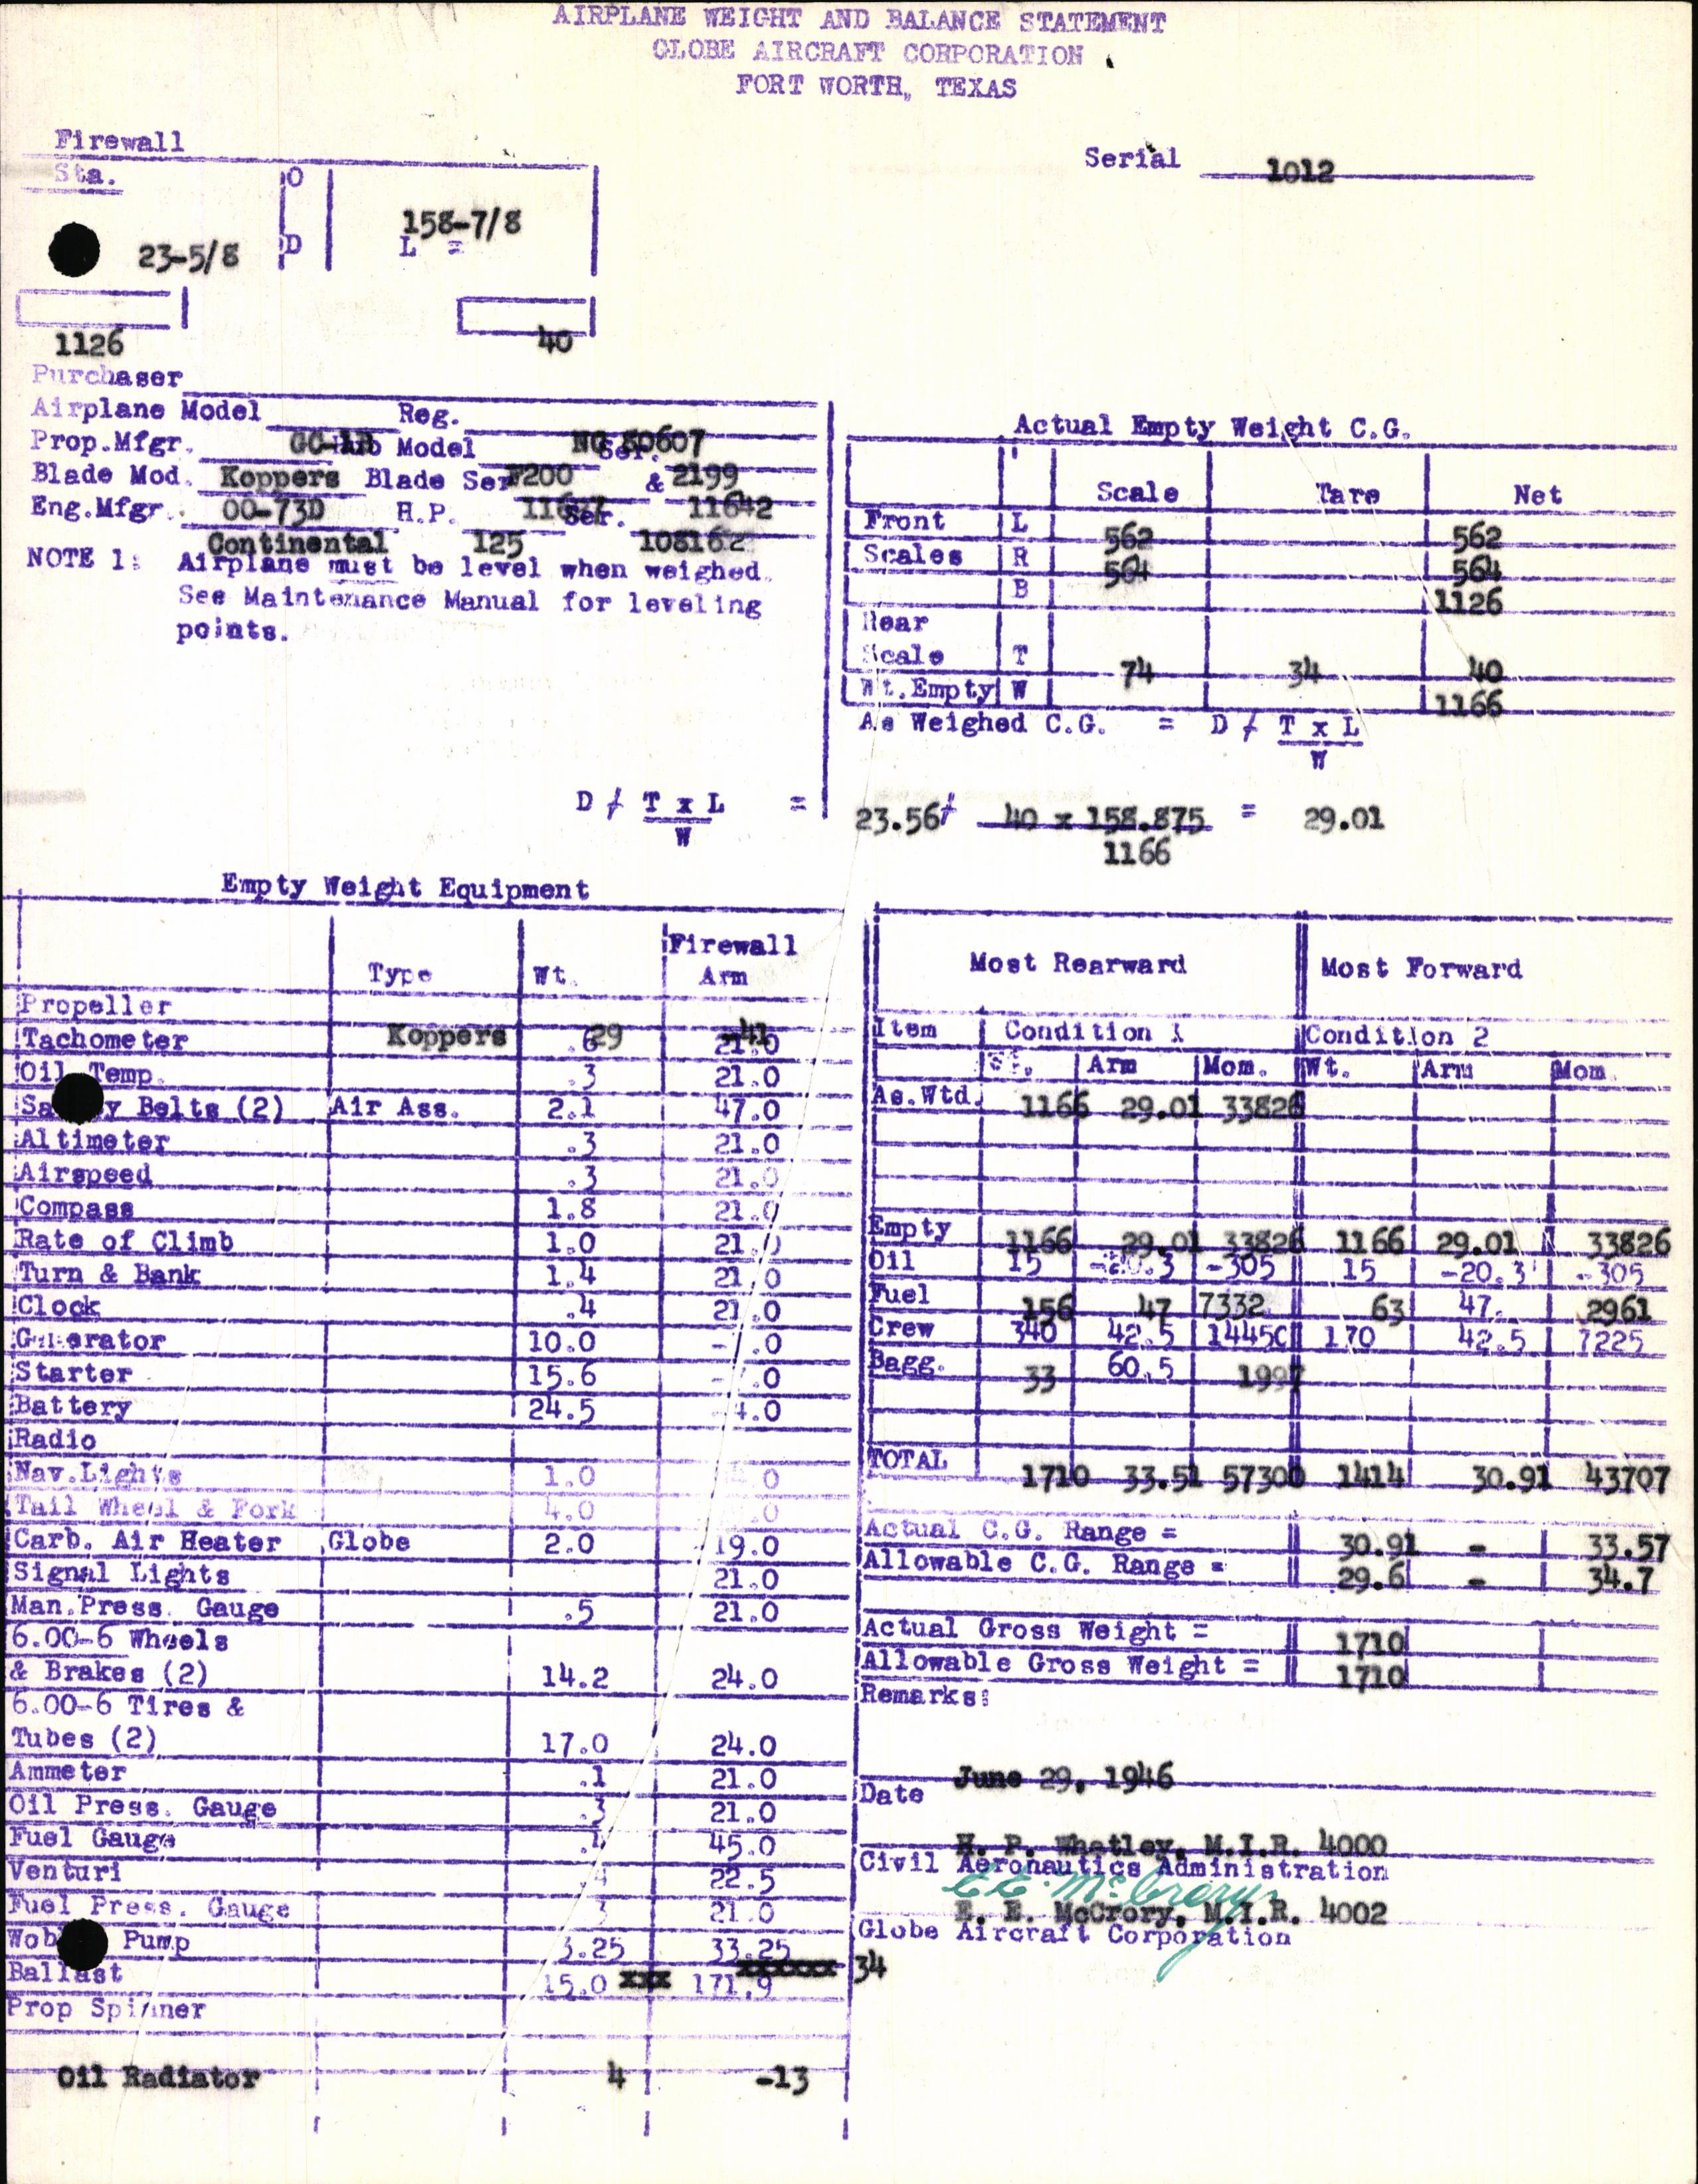 AIRPLANE WEIGHT AND BALANCE STATEMENT
GLOBE AIRCRAFT CORPORATION
FORT WORTH, TEXAS
Firewall
Sta.
Serial 1012
O
158-7/8
23-5/8 D L =
1126 40
Purchaser
Airplane Model Reg.
Prop.Mfgr. GC-1B Hub Model NC 80607 Ser.
Blade Mod. Koppers Blade Ser F200 & 2199
Eng.Mfgr. 00-73D H.P. Ser. 11642
Continental 125 108162
NOTE 1: Airplane must be level when weighed.
See Maintenance Manual for leveling
points.
Actual Empty Weight C.G.
Scale Tare Net
Front L 562 562
Scales R 564 564
B 1126
Rear
Scale T 74 34 40
Wt.Empty W 1166
As Weighed C.G. = D / T x L
W
D / T x L =
W
23.56/ 40 x 158.875 = 29.01
1166
Empty Weight Equipment
Type Wt. Firewall Arm
Propeller Koppers 29 -41
Tachometer .6 21.0
Oil Temp. .3 21.0
Belts (2) Air Ass. 2.1 47.0
Altimeter .3 21.0
Airspeed .3 21.0
Compass 1.8 21.0
Rate of Climb 1.0 21.0
Turn & Bank 1.4 21.0
Clock .4 21.0
Generator 10.0
Starter 15.6
Battery 24.5
Radio
Nav.Lights 1.0
Tail Wheel & Fork 4.0
Carb. Air Heater Globe 2.0 -19.0
Signal Lights 21.0
Man.Press. Gauge .5 21.0
6.00-6 Wheels
& Brakes (2) 14.2 24.0
6.00-6 Tires &
Tubes (2) 17.0 24.0
Ammeter .1 21.0
Oil Press. Gauge .3 21.0
Fuel Gauge 45.0
Venturi .4 22.5
Fuel Press. Gauge .3 21.0
Pump 3.25 33.25
Ballast 15.0 xxx 171.9 xxxxxx 34
Prop Spinner
Oil Radiator 4 -13
Most Rearward Most Forward
Item Condition 1 Condition 2
Wt. Arm Mom. Wt. Arm Mom.
As.Wtd. 1166 29.01 33826
Empty 1166 29.01 33826 1166 29.01 33826
Oil 15 -20.3 -305 15 -20.3 -305
Fuel 156 47 7332 63 47. 2961
Crew 340 42.5 14450 170 42.5 7225
Bagg. 33 60.5 1997
TOTAL 1710 33.51 57300 1414 30.91 43707
Actual C.G. Range = 30.91 - 33.57
Allowable C.G. Range = 29.6 - 34.7
Actual Gross Weight = 1710
Allowable Gross Weight = 1710
Remarks:
Date June 29, 1946
H. P. Whatley, M.I.R. 4000
Civil Aeronautics Administration
E.E. McCrory
E. E. McCrory, M.I.R. 4002
Globe Aircraft Corporation